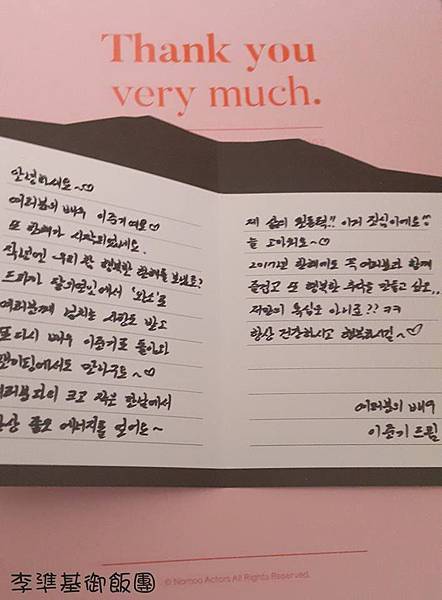 Thank you
very much.
안녕하세요~
여러분의 배우 이준기예요♡
또 한해가 시작되었네요.
작년엔 우리 참 행복한 한해를 보냈죠?
드라마 달의연인에서 '왕소'로
여러분께 넘치는 사랑도 받고
또다시 배우 이준기로 돌아와
팬미팅에서도 만나구요~♡
여러분과의 크고 작은 만남에서
항상 좋은 에너지를 얻어요~
제 삶의 원동력!! 이거 진심이에요!!
늘 고마워요~♡
2017년 한해에도 꼭 여러분과 함께
즐겁고 또 행복한 추억을 만들고 싶은,,
저만의 욕심은 아니죠?? ㅋㅋ
항상 건강하시고 행복하시길~♡
여러분의 배우
이준기 드림
© Namoo Actors All Rights Reserved.
李準基御飯團